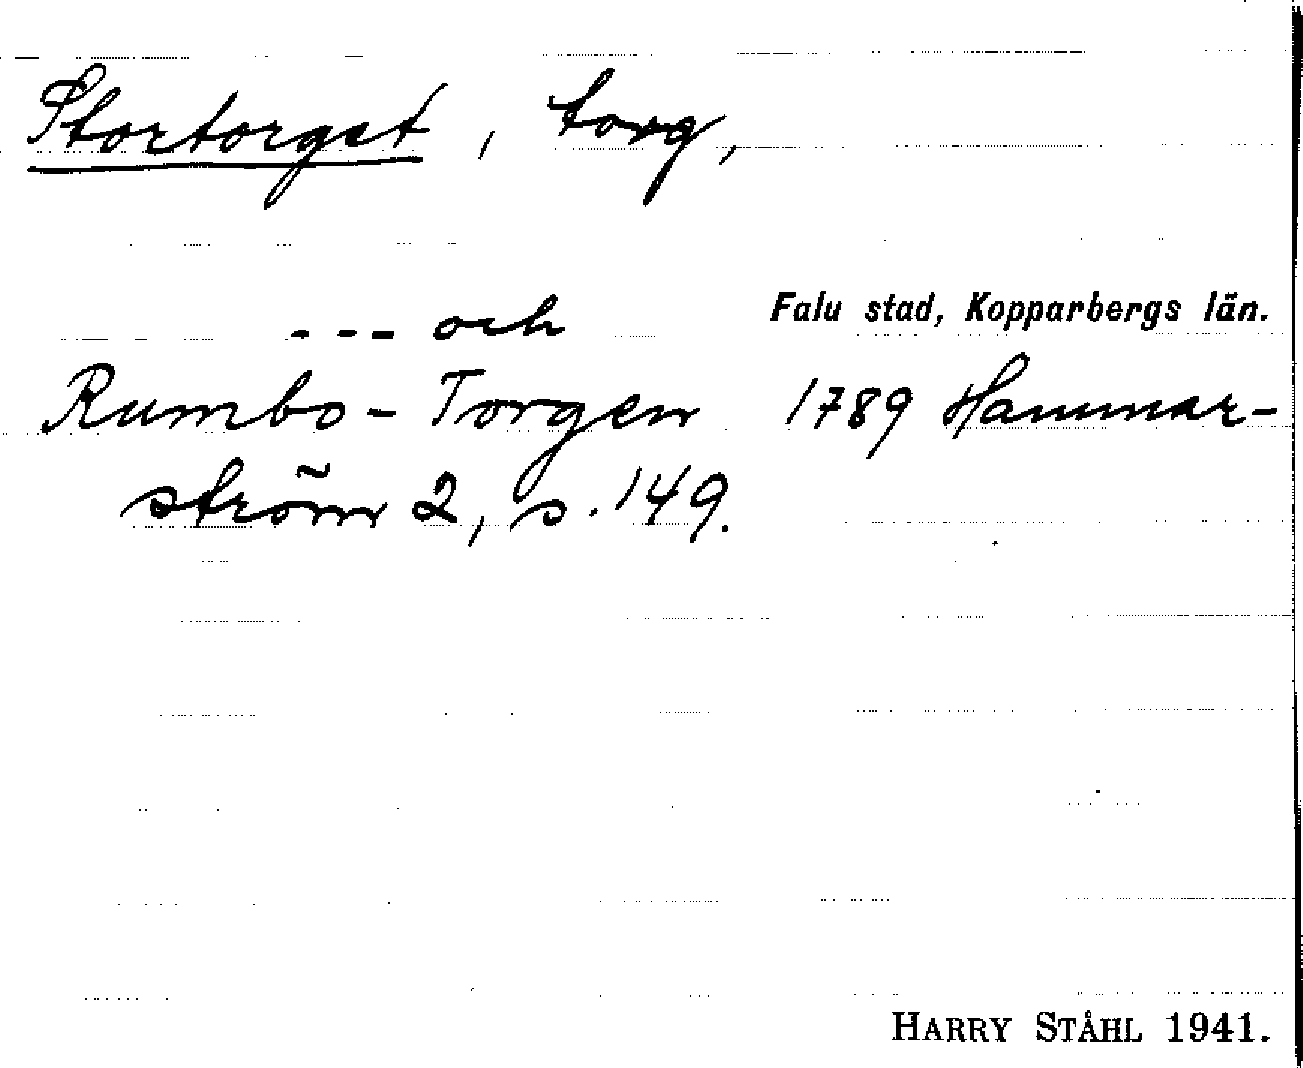 Stortorget, torg,
Falu stad, Kopparbergs län.
--- och
Rumbo-Torgen 1789 Hammar-
ström 2, s. 149.
HARRY STÅHL 1941.